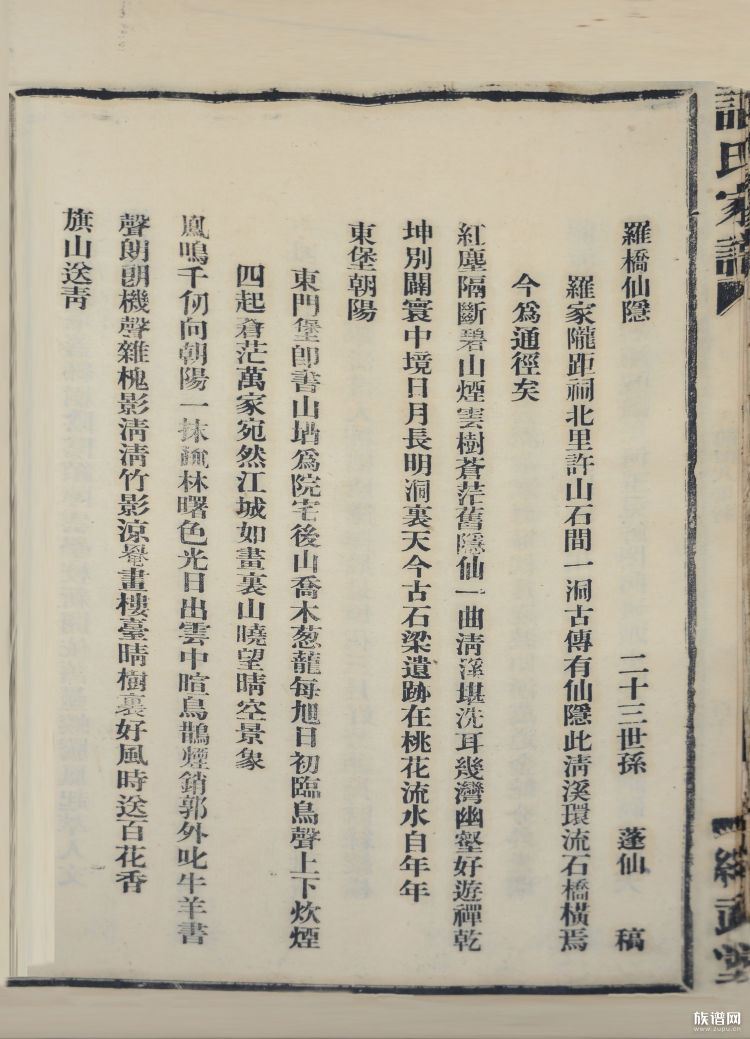 羅橋仙隱 二十三世孫 蓬仙 稿
羅家隴距祠北里許山石間一洞古傳有仙隱此淸溪環流石橋橫焉
今爲通徑矣
紅塵隔斷碧山煙雲樹蒼茫舊隱仙一曲淸溪堪洗耳幾灣幽壑好遊禪乾
坤別闢寰中境日月長明洞裏天今古石梁遺跡在桃花流水自年年
東堡朝陽
東門堡卽書山塆爲院宅後山喬木葱蘢每旭日初臨鳥聲上下炊煙
四起蒼茫萬家宛然江城如畫裏山曉望晴空景象
鳳鳴千仞向朝陽一抹疏林曙色光日出雲中暄鳥鵲煙銷郭外叱牛羊書
聲朗朗機聲雜槐影淸淸竹影涼畫樓臺晴樹裏好風時送百花香
旗山送靑
許氏家譜
族谱网
www.zupu.cn